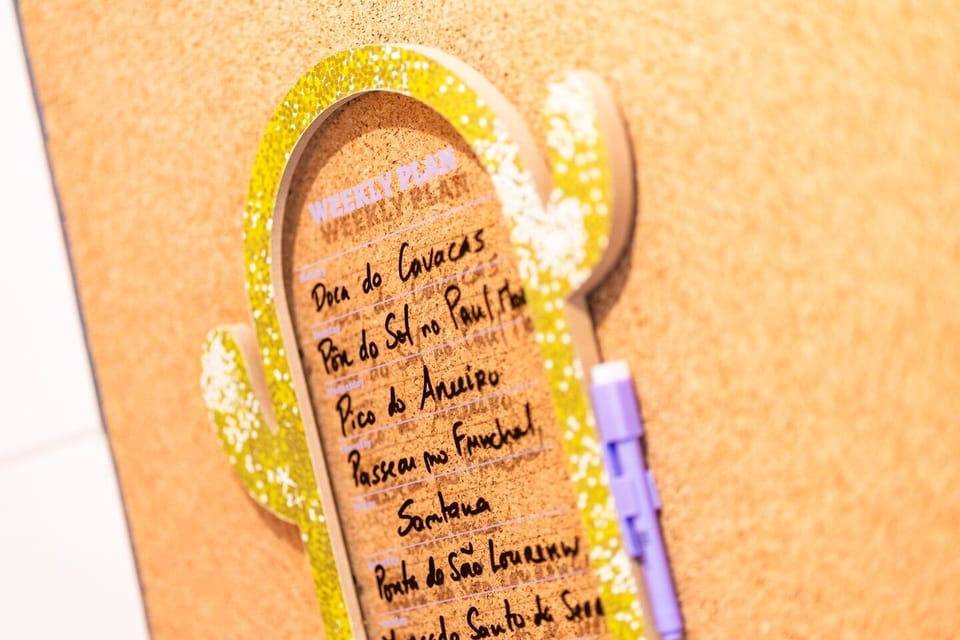 WEEKLY PLAN
Doca do Cavacas
Pôr do Sol no Paul
Pico do Arieiro
Passear no Funchal,
Santana
Ponta do São Lourenço
Santo da Serra